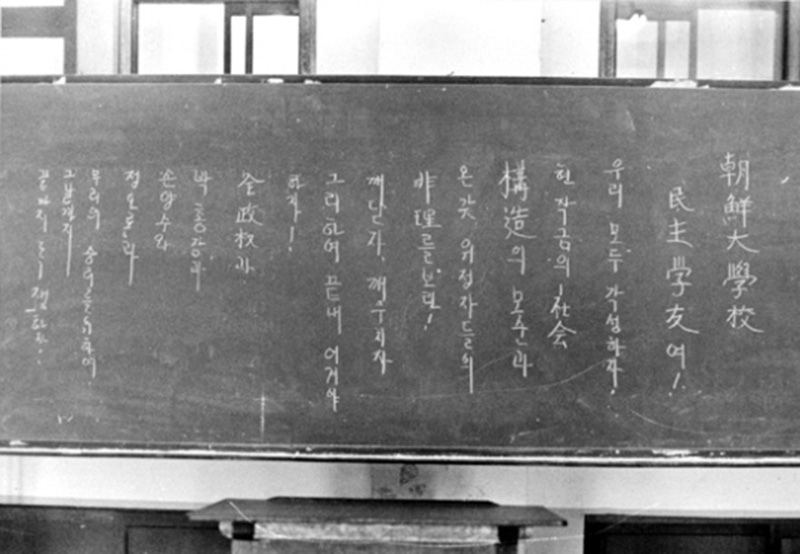 朝鮮大學校
民主學友여!
우리 모두 각성하자!
현 작금의 社会
構造의 모순과
온갖 위정자들의
非理를 보라!
깨닫자, 깨우치자
그리하여 끝내 이겨야
하자!
政权과
박흥강과
손양수와
정오룬과
우리의 승리를 위하여!
그날까지
끝까지 투쟁하자!